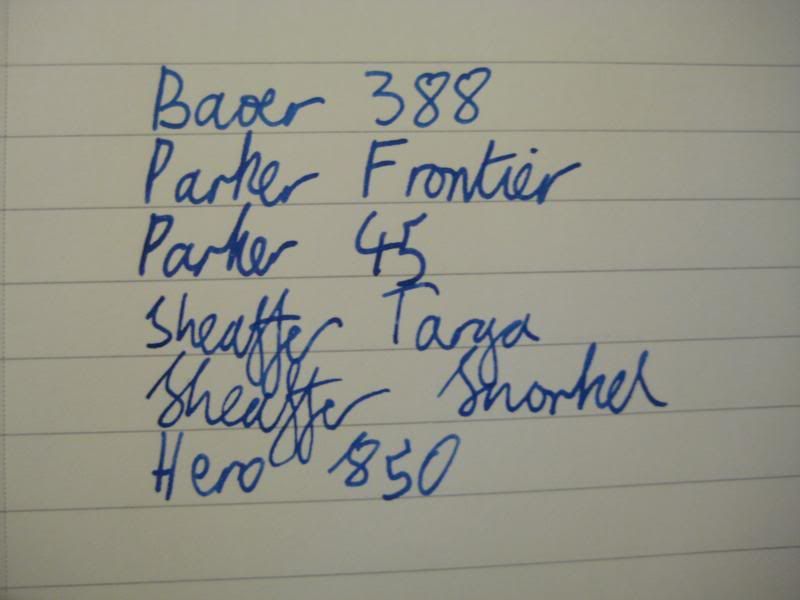 Baoer 388
Parker Frontier
Parker 45
Sheaffer Targa
Sheaffer Snorkel
Hero 850